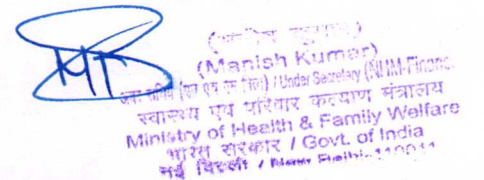 (मनीष कुमार)
(Manish Kumar)
अवर सचिव (एन एच एम वित्त) / Under Secretary (NHM-Finance
स्वास्थ्य एवं परिवार कल्याण मंत्रालय
Ministry of Health & Family Welfare
भारत सरकार / Govt. of India
नई दिल्ली / New Delhi-110011